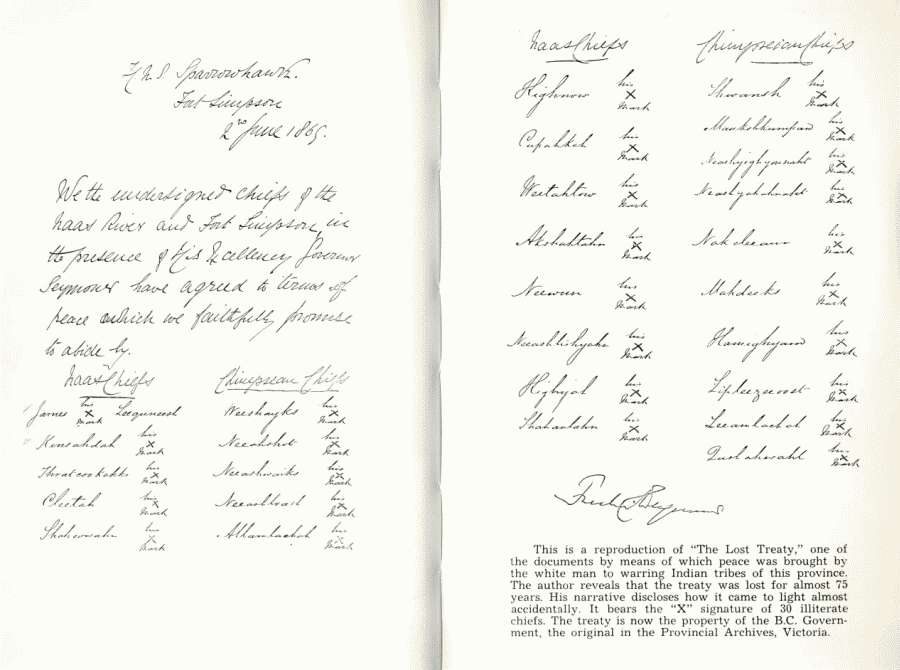 H.M.S. Sparrowhawk.
Fort Simpson
2nd June 1869.
We the undersigned chiefs of the
Naas River and Fort Simpson, in
the presence of His Excellency Governor
Seymour have agreed to terms of
peace which we faithfully promise
to abide by.
Naas Chiefs
James his X mark
Kinsahdah his X mark
his X mark
Cletah his X mark
his X mark
Chimpsean Chiefs
Weeshayks his X mark
Neeahshot his X mark
Neeashwaiks his X mark
his X mark
his X mark
Naas Chiefs
Highnow his X mark
Cupahkeh his X mark
Weetahtow his X mark
Akshahtahn his X mark
Neewun his X mark
his X mark
Highjah his X mark
his X mark
Chimpsean Chiefs
Shwansh his X mark
his X mark
his X mark
his X mark
his X mark
Mahdeeks his X mark
his X mark
his X mark
his X mark
his X mark
This is a reproduction of “The Lost Treaty,” one of
the documents by means of which peace was brought by
the white man to warring Indian tribes of this province.
The author reveals that the treaty was lost for almost 75
years. His narrative discloses how it came to light almost
accidentally. It bears the “X” signature of 30 illiterate
chiefs. The treaty is now the property of the B.C. Govern-
ment, the original in the Provincial Archives, Victoria.